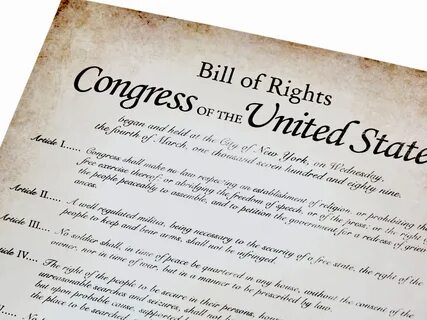 Bill of Rights
Congress OF THE United State
began and held at the City of New York, on Wednesday,
the fourth of March, one thousand seven hundred and eighty nine.
Article I...... Congress shall make no law respecting an establishment of religion, or prohibiting the
free exercise thereof; or abridging the freedom of speech, or of the press, or the right of
the people peaceably to assemble, and to petition the government for a redress of griev
ances.
Article II...... A well regulated militia, being necessary to the security of a free state, the right of the
people to keep and bear arms, shall not be infringed.
Article III.... No soldier shall, in time of peace be quartered in any house, without the consent of the
owner, nor in time of war, but in a manner to be prescribed by law.
icle IV.... The right of the people to be secure in their persons, hous
unreasonable searches and seizures, shall not
but upon probable cause, supported
the place to be searched,